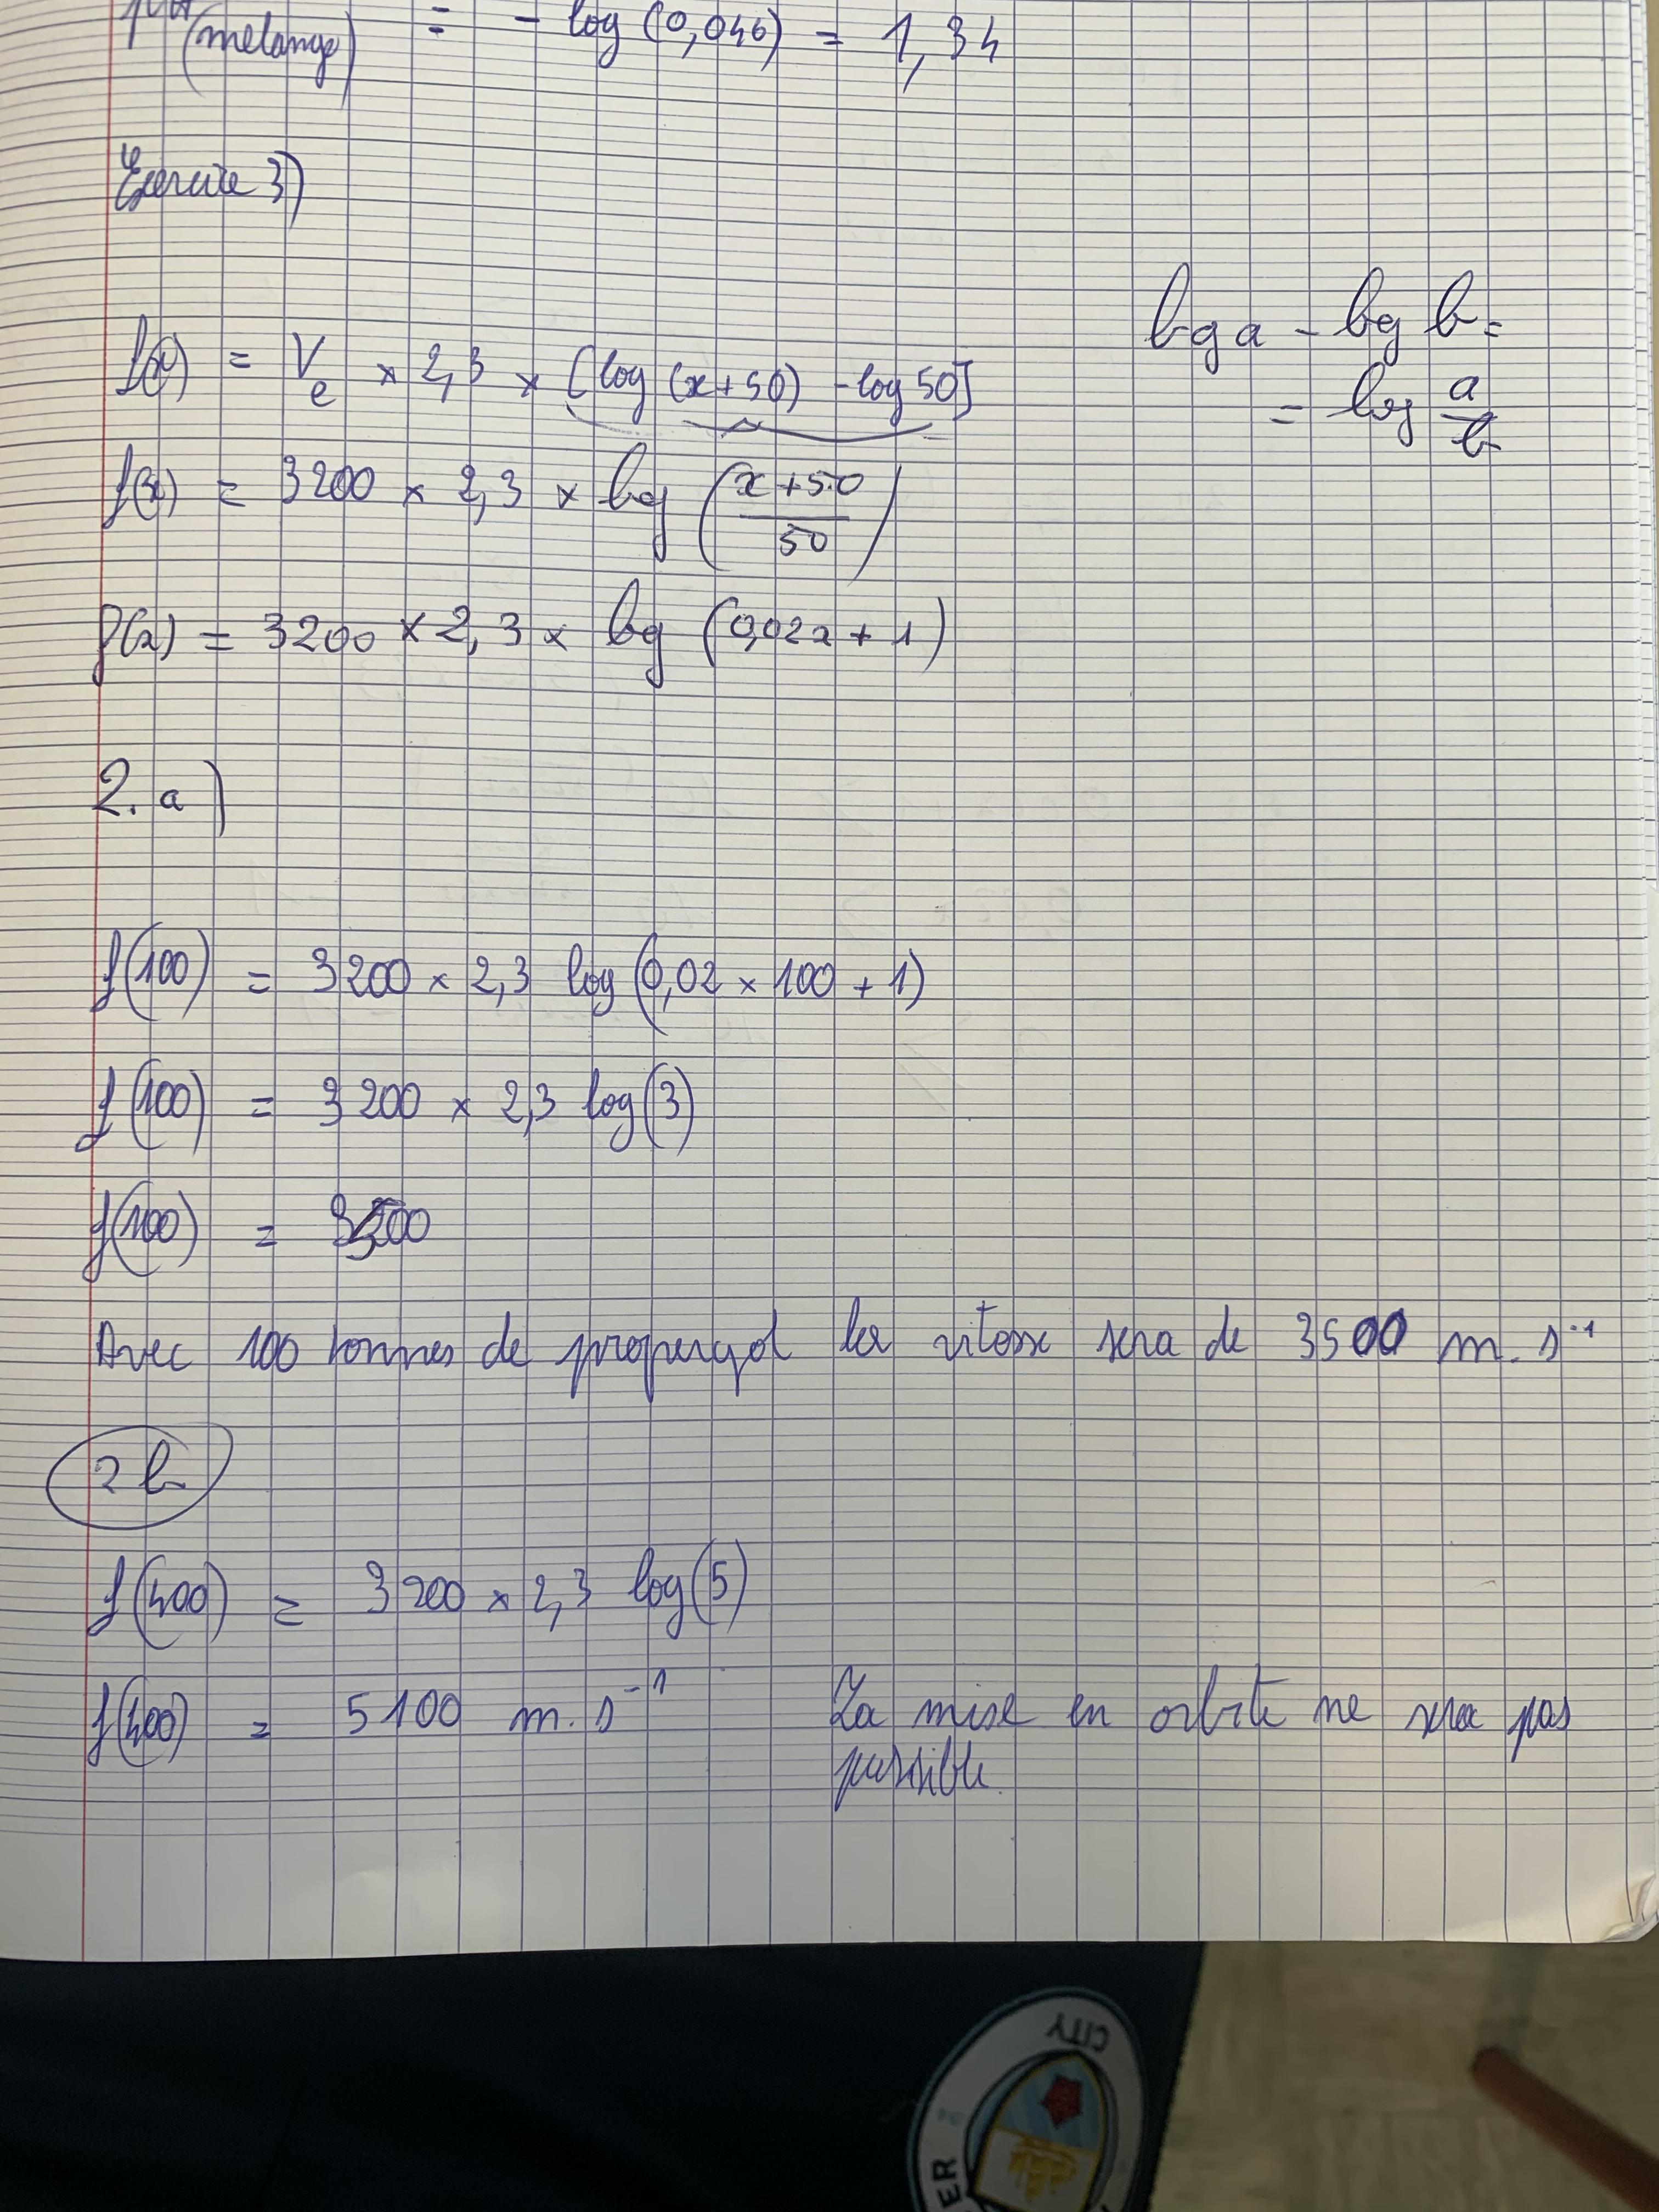 (melange) = - log (0,046) = 1,34
Exercice 3)
f(x) = Ve × 2,3 × [log (x+50) - log 50]
log a - log b =
= log a/b
f(x) = 3200 × 2,3 × log (x+50/50)
f(x) = 3200 × 2,3 × log (0,02x + 1)
2. a)
f(100) = 3200 × 2,3 log (0,02 × 100 + 1)
f(100) = 3200 × 2,3 log (3)
f(100) = 3500
Avec 100 tonnes de propergol la vitesse sera de 3500 m.s⁻¹
2 b
f(400) = 3200 × 2,3 log (5)
f(400) = 5100 m.s⁻¹
La mise en orbite ne sera pas
possible.
CITY
ER